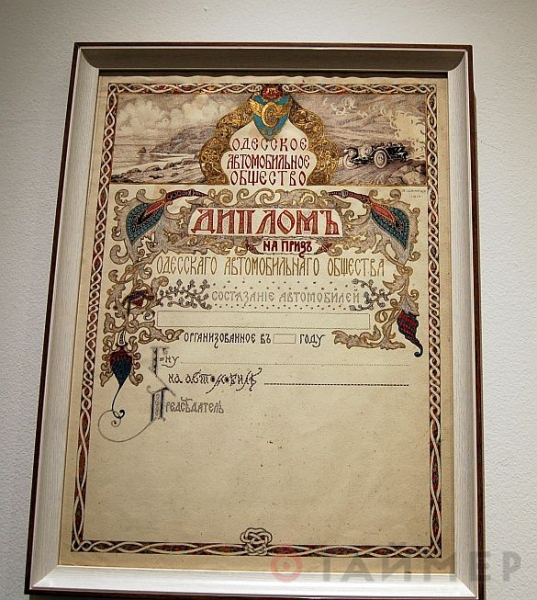 ОДЕССКОЕ
АВТОМОБИЛЬНОЕ
ОБЩЕСТВО
ДИПЛОМЪ
НА ПРИЗЪ
ОДЕССКАГО АВТОМОБИЛЬНАГО ОБЩЕСТВА
СОСТЯЗАНIЕ АВТОМОБИЛЕЙ
ОРГАНИЗОВАННОЕ ВЪ ГОДУ
Г-ну
на автомобилѣ
ПРЕДСѢДАТЕЛЬ
ТАЙМЕР